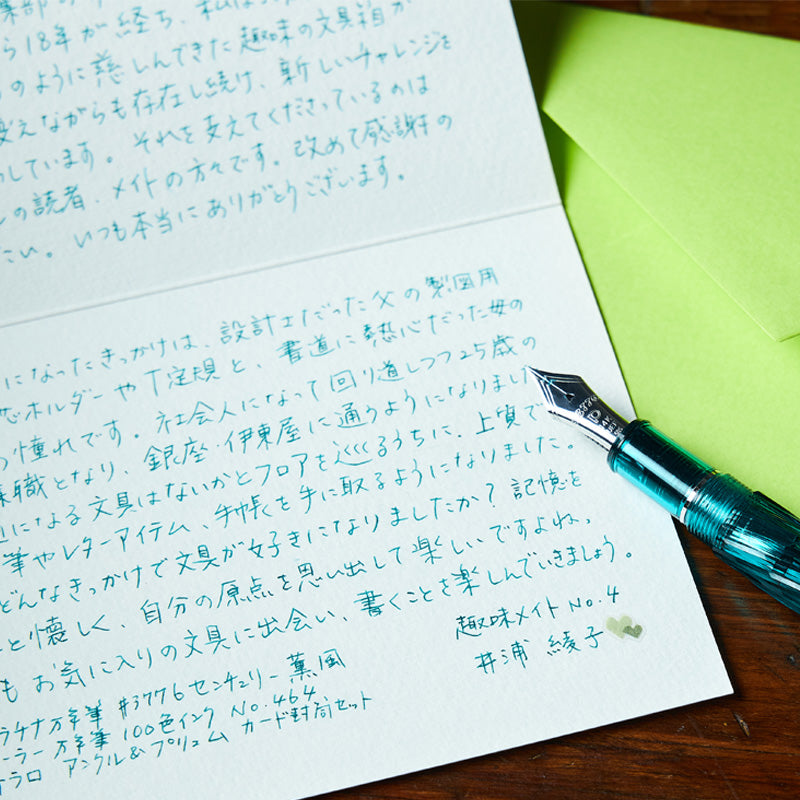 ら18年が経ち、私は
のように慈しんできた趣味の文具箱が
変えながらも存在し続け、新しいチャレンジを
しています。それを支えてくださっているのは
の読者・メイトの方々です。改めて感謝の
たい。いつも本当にありがとうございます。
になったきっかけは、設計士だった父の製図用
芯ホルダーやT定規と、書道に熱心だった母の
憧れです。社会人になって回り道しつつ25歳の
職となり、銀座・伊東屋に通うようになりまし
になる文具はないかとフロアを巡るうちに、上質で
筆やレターアイテム、手帳を手に取るようになりました。
どんなきっかけで文具が好きになりましたか？記憶を
と懐しく、自分の原点を思い出して楽しいですよね。
も お気に入りの文具に出会い、書くことを楽しんでいきましょう。
趣味メイト No.4
井浦 綾子
ラチナ万年筆 #3776センチュリー 薫風
ーラー 万年筆 100色インク No.464
ラロ アンクル&プリュム カード封筒セット
3776
P